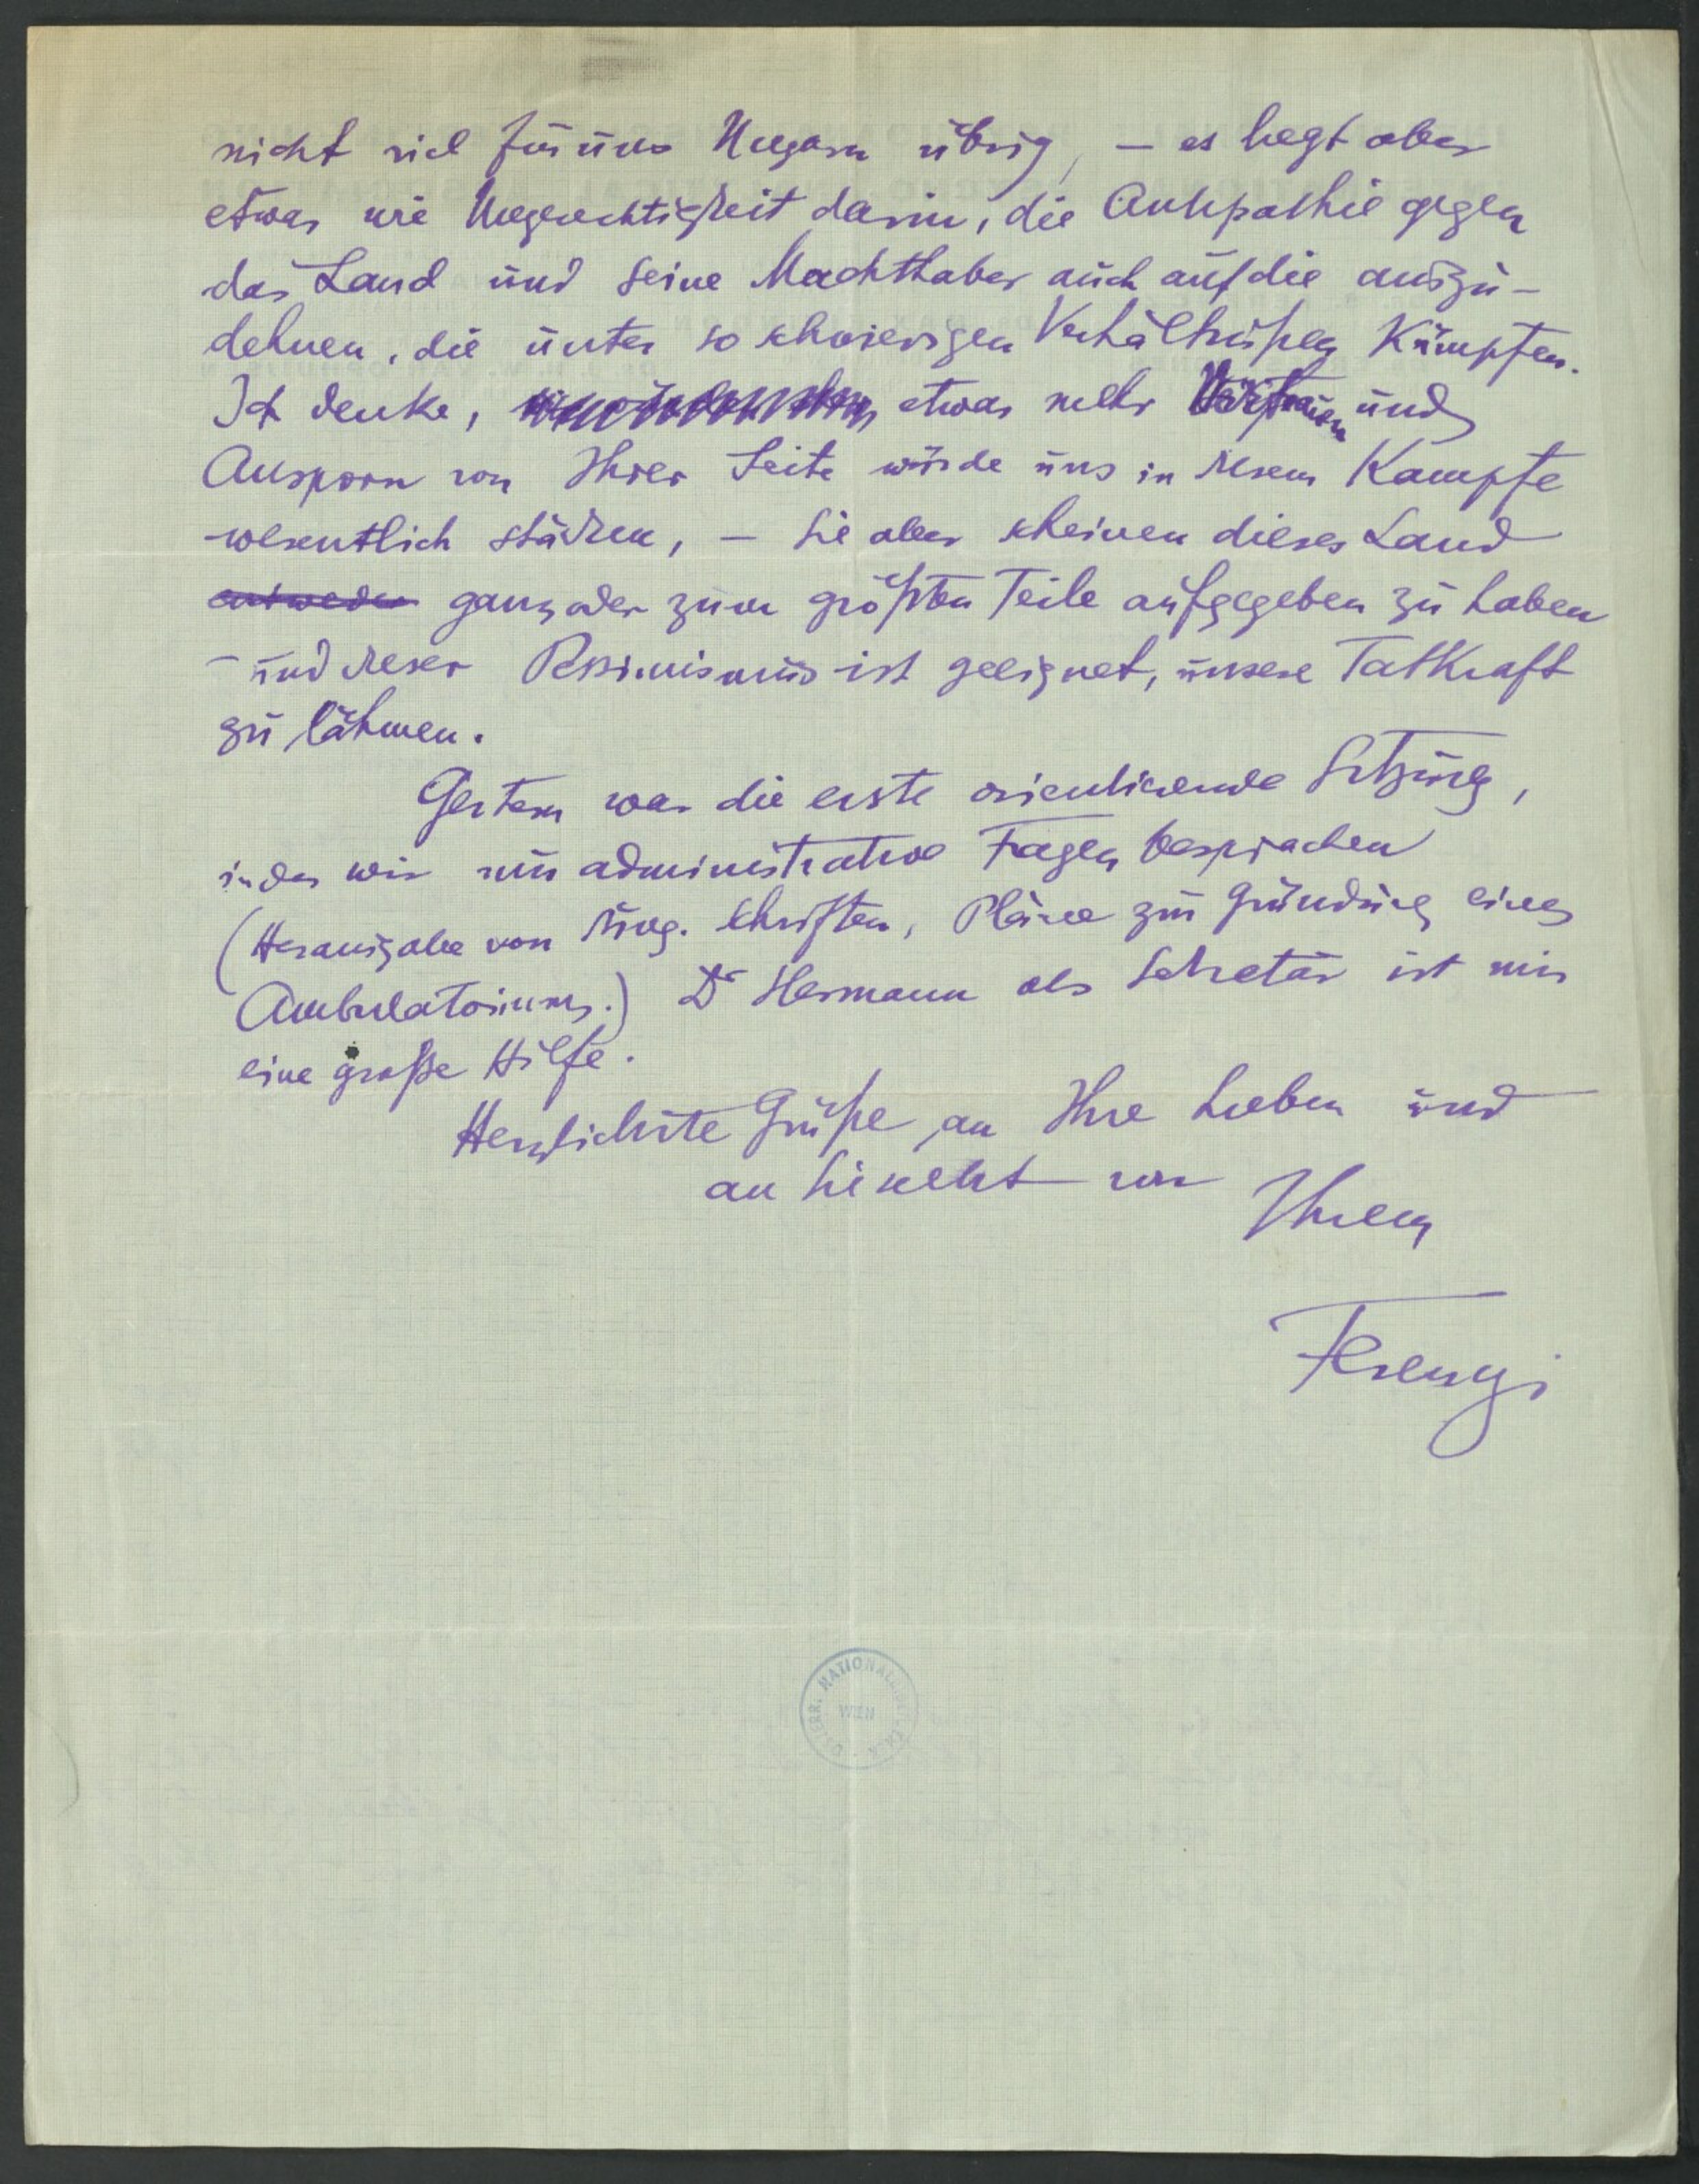 nicht viel für uns Ungarn übrig, – es liegt aber
etwas wie Ungerechtigkeit darin, die Antipathie gegen
das Land und seine Machthaber auch auf die auszu-
dehnen, die unter so schwierigen Verhältnißen kämpfen.
Ich denke, etwas mehr Vertrauen und
Ansporn von Ihrer Seite würde uns in diesem Kampfe
wesentlich stärken, – Sie aber scheinen dieses Land
entweder ganz oder zum größten Teile aufgegeben zu haben
– und dieser Pessimismus ist geeignet, unsere Tatkraft
zu lähmen.
Gestern war die erste orientierende Sitzung,
in der wir nur administrative Fragen besprachen
(Herausgabe von ung. Schriften, Pläne zur Gründung eines
Ambulatoriums.) Dr Hermann als Sekretär ist mir
eine große Hilfe.
Herzlichste Grüße an Ihre Lieben und
an Sie selbst von
Ihrem
Ferenczi
ÖSTERR. NATIONALBIBLIOTHEK
WIEN